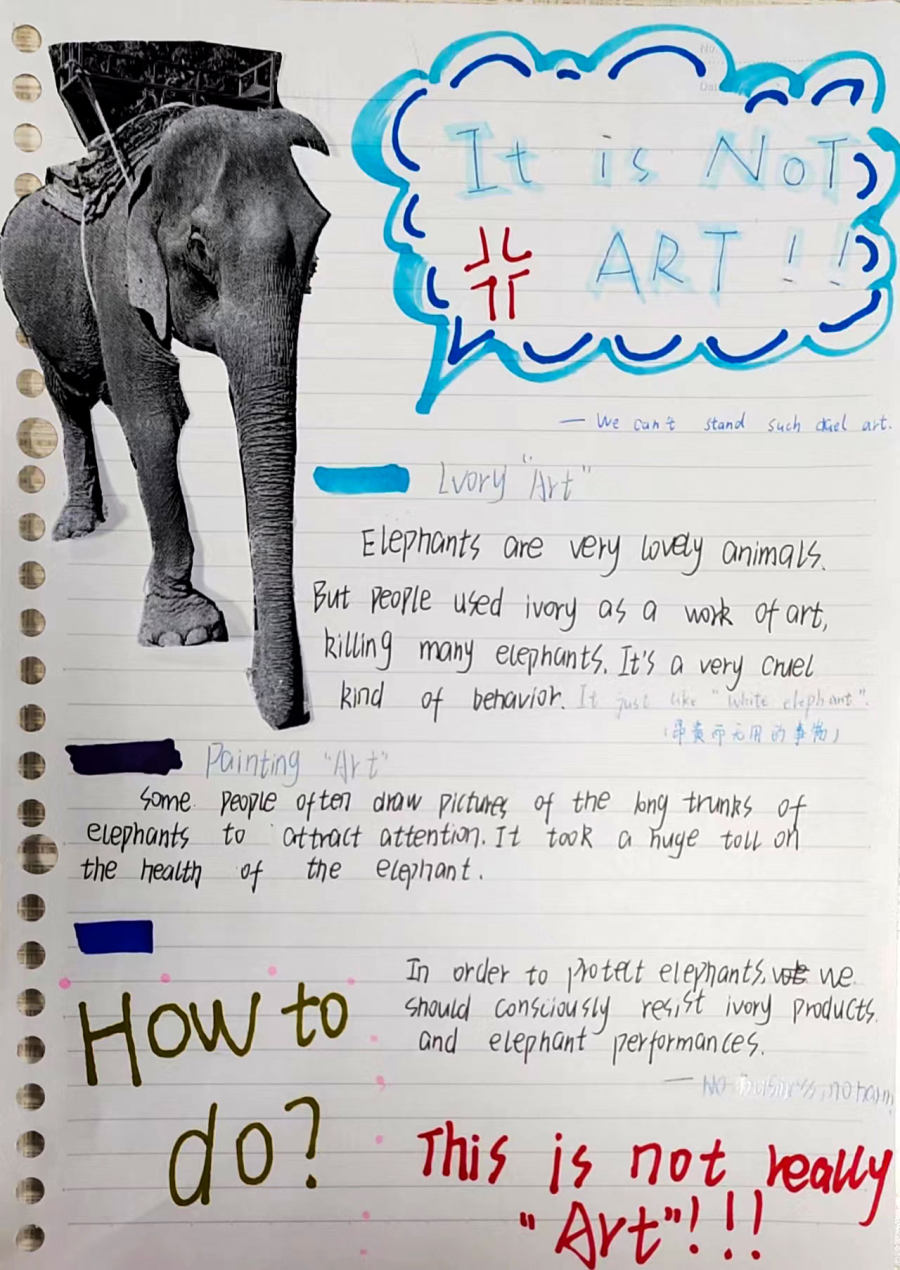 It is NoT
ART!!
— We can't stand such cruel art.
Lvory "Art"
Elephants are very lovely animals.
But people used ivory as a work of art,
killing many elephants. It's a very cruel
kind of behavior. It just like "white elephant".
(昂贵而无用的事物)
Painting "Art"
Some people often draw pictures of the long trunks of
elephants to attract attention. It took a huge toll on
the health of the elephant.
In order to protect elephants, we
should consciously resist ivory products
and elephant performances.
— No business, no harm
How to
do?
This is not really
"Art"!!!